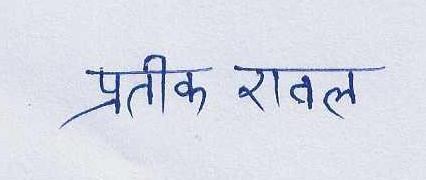 प्रतीक रावल